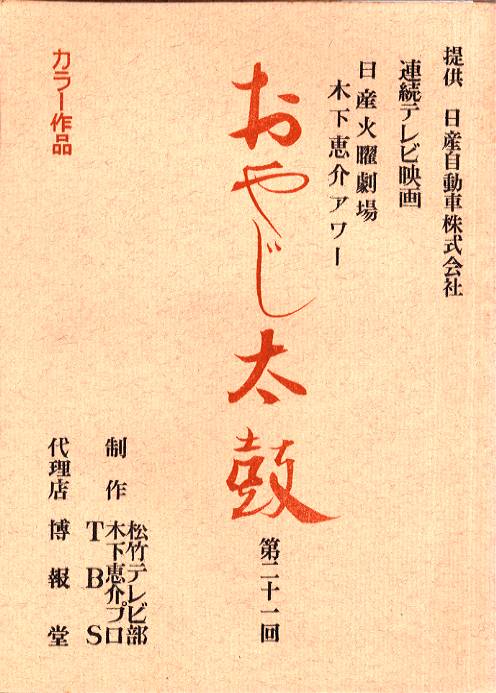 提供 日産自動車株式会社
連続テレビ映画
日産火曜劇場
木下恵介アワー
おやじ太鼓
第二十一回
制作
松竹テレビ部
木下恵介プロ
TBS
代理店 博報堂
カラー作品